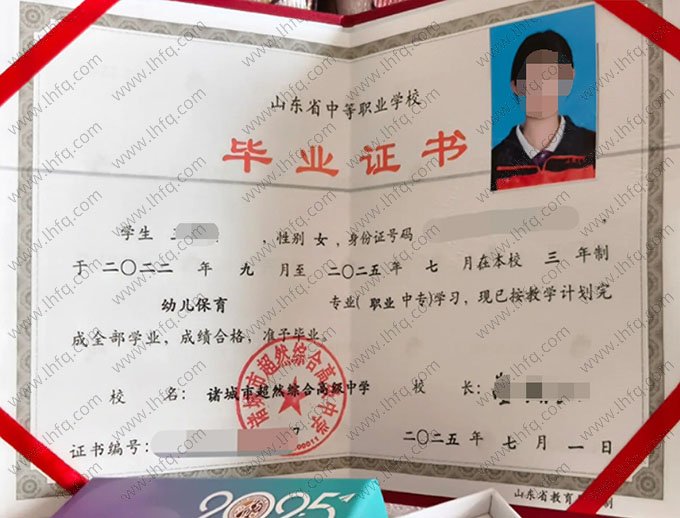 山东省中等职业学校
毕业证书
学生 ，性别 女 ，身份证号码 ，
于 二〇二二 年 九 月至 二〇二五 年 七 月在本校 三 年制
幼儿保育 专业( 职业 中专)学习，现已按教学计划完
成全部学业，成绩合格，准予毕业。
校 名： 诸城市超然综合高级中学 校 长：
诸城市超然综合高级中学
00011
证书编号：
二〇二五 年 七 月 一 日
山东省教育 制
2025
www.lhfq.com